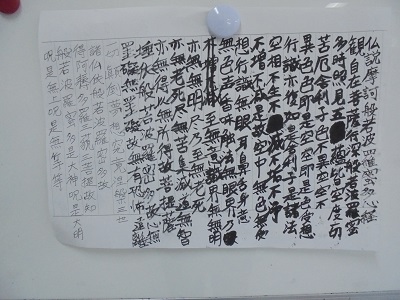 仏説摩訶般若波羅蜜多心経
観自在菩薩行深般若波羅蜜
多時照見五皆空度切
苦厄舎利子色不異空空不
異色色即是空空即是色受想
行識亦復如是舎利子是諸法
空相不生不滅不垢不浄
不増不減是故空中無色無受
想行識無眼耳鼻舌身意
無色声香味触法無眼界乃
至無意識界無無明
亦無無明尽乃至無老死
亦無老死尽無苦集滅道無智
亦無得以無所得故菩提薩
埵依般若波羅蜜多故心無
罣礙無罣礙故無有恐怖遠離
一切顛倒夢想究竟涅槃三世
諸仏依般若波羅蜜多故
得阿耨多羅三藐三菩提故知
般若波羅蜜多是大神呪是大明
呪是無上呪是無等等